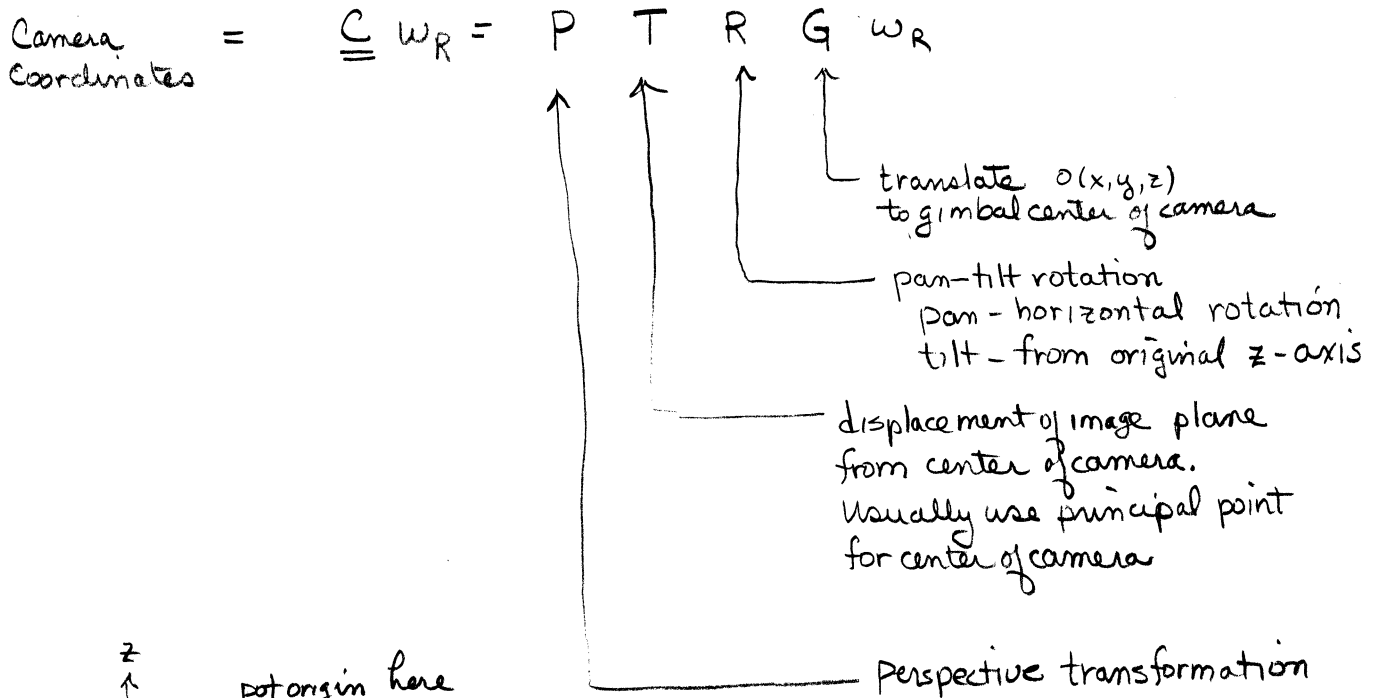 Camera = C w_R = P T R G w_R
Coordinates
translate O(x,y,z)
to gimbal center of camera
pan-tilt rotation
pan - horizontal rotation
tilt - from original z-axis
displacement of image plane
from center of camera.
Usually use principal point
for center of camera
z
origin here
perspective transformation